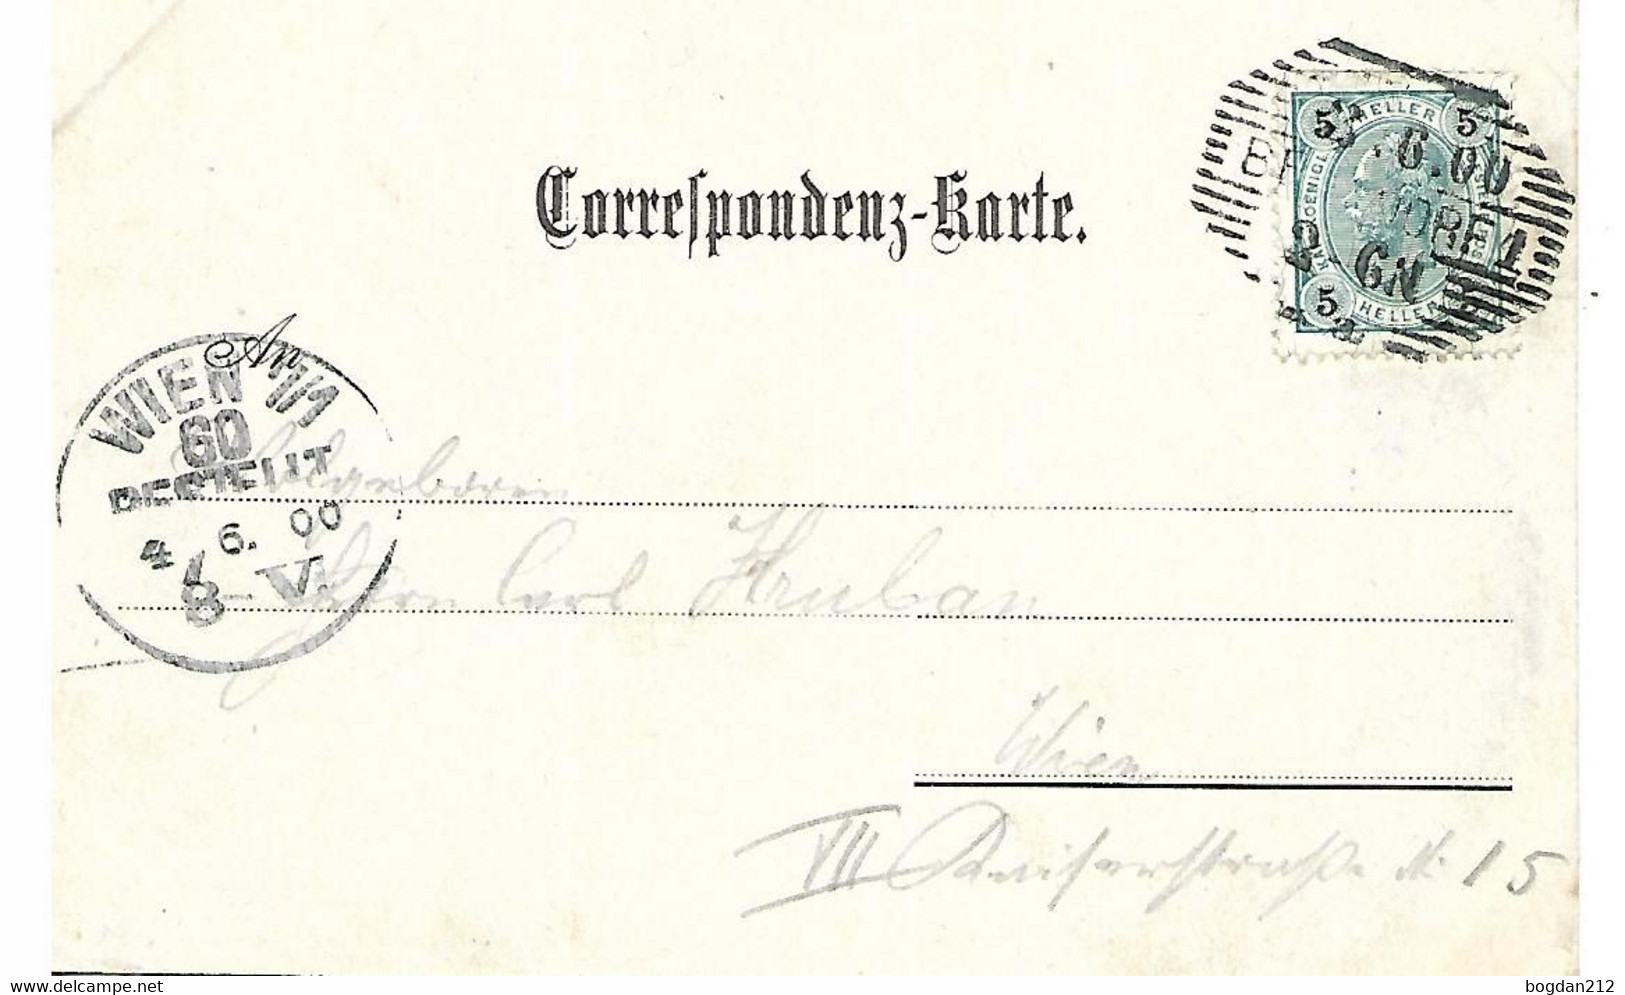 Correspondenz-Karte.
5 HELLER 5
6.00
6 N
5 HELLER
An
WIEN 7/1
60
BESTELLT
4 6. 00
8 V.
Wohlgeboren
Herrn Carl Hruban
Wien
VII Kaiserstraße N: 15
Delcampe.net
bogdan212